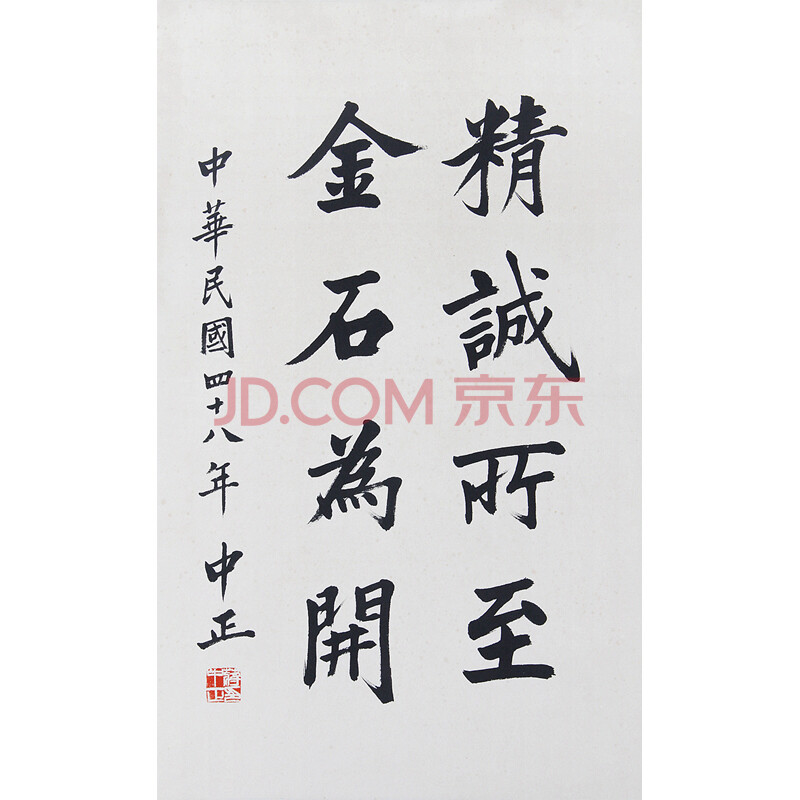 精誠所至
金石為開
中華民國四十八年 中正
蔣中正印
JD.COM 京东